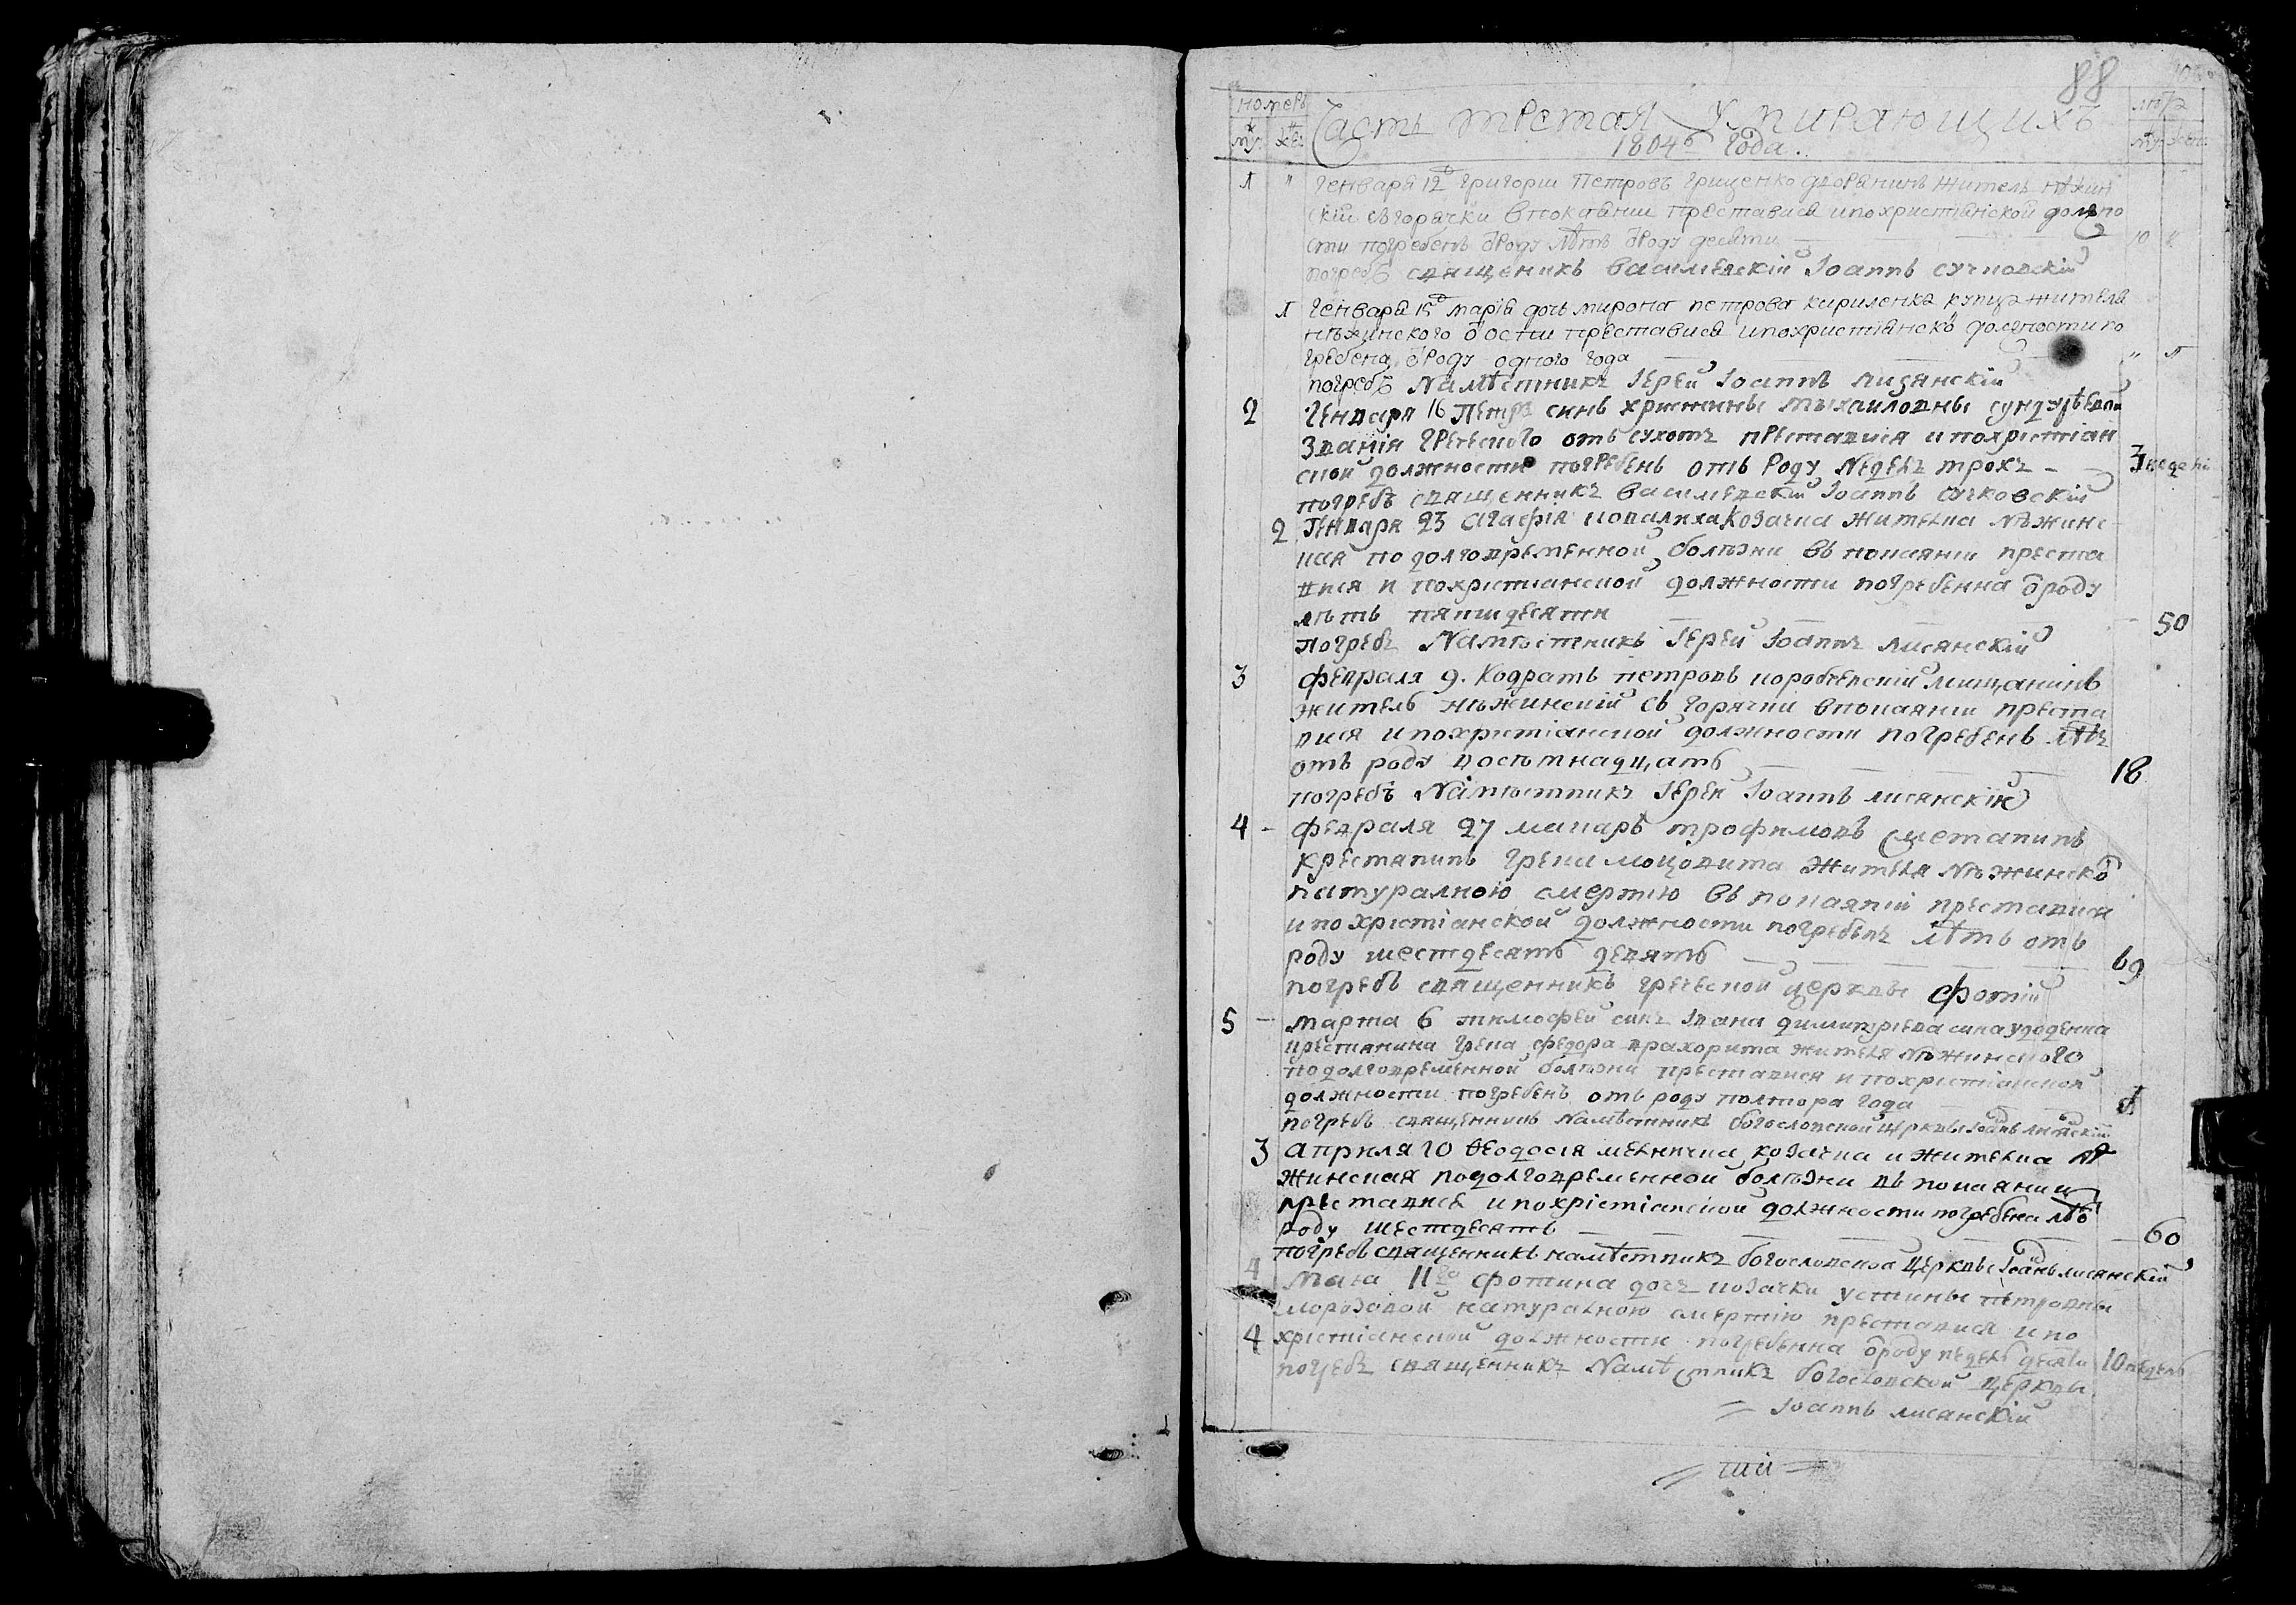 88
номеръ
му: же:
Часть третая Умирающихъ
1804 года.
лѣта
му: жен:
1 " Генваря 12 григории Петровъ грищенко дворянинъ житель нѣжин
скїй съ горячки впокаянии преставися ипохристиянской должно
сти погребенъ ѿроду лѣтъ ѿроду десяти 10 "
погребъ священикъ василевский Иоаннъ
1 Генваря 15 марїя дочь мирона петрова кириленка купца жителя
нѣжинского преставися ипохристиянско должности по
гребена ѿроду одного года " 1
погребъ Намѣстникъ Іерей Іоаннъ лисянскїй
2 Генваря 16 Петръ синъ христины михаиловны
Званїя греческого отъ сухотъ преставися и похристїан
ской должности погребенъ отъ Роду Недель трохъ - 3 недели
погребъ священникъ василевский Іоаннъ
2 Генваря 23 Агафїя ковалиха козачка жителка нѣжинс
кая по долговременной болѣзни въ покаянии преста
вися и похристианской должности погребенна ѿроду
лѣтъ пятидесяти 50
погребъ Намѣстникъ Іерей Іоаннъ лисянскїй
3 февраля 9. Кодратъ петровъ мищанинъ
житель нѣжинский съ горячки впокаянии преста
вися ипохристїанской должности погребенъ лѣтъ
отъ роду восѣмнадцать 18
погребъ Намѣстникъ Іерей Іоаннъ лисянскїй
4 - февраля 27 макаръ трофимовъ сметанинъ
крестянинъ грека жителя Нѣжинско
натуралною смертїю въ покаянїи преставися
и похрїстїанской должности погребенъ лѣтъ отъ
роду шестдесятъ девять 69
погребъ священникъ греческой церкви фотїй
5 - марта 6 тимофей синъ Ивана димитрїева сина
крестянина грека федора жителя Нѣжинского
подолговременной болѣзни преставися и похрїстїанской
должности погребенъ отъ роду полтора года
погребъ священникъ Намѣстникъ богословской церкви Іоаннъ лисянскїй
3 априля 20 Ѳеодосїя козачка и жителка нѣ
жинская подолговременной болѣзни въ покаянии
преставися ипохрїстїанской должности погребена лѣтъ ѿ
роду шестдесятъ 60
погребъ священникъ намѣстникъ богословской церкви Іоаннъ лисянскїй
4 Маїа 11го фотина дочь козачки устины петровны
морозовой натуралною смертїю преставися и по
4 хрїстїанской должности погребенна ѿроду недель десяти 10 недель
погребъ священникъ Намѣстникъ богословской церкви
= Іоаннъ лисянскїй